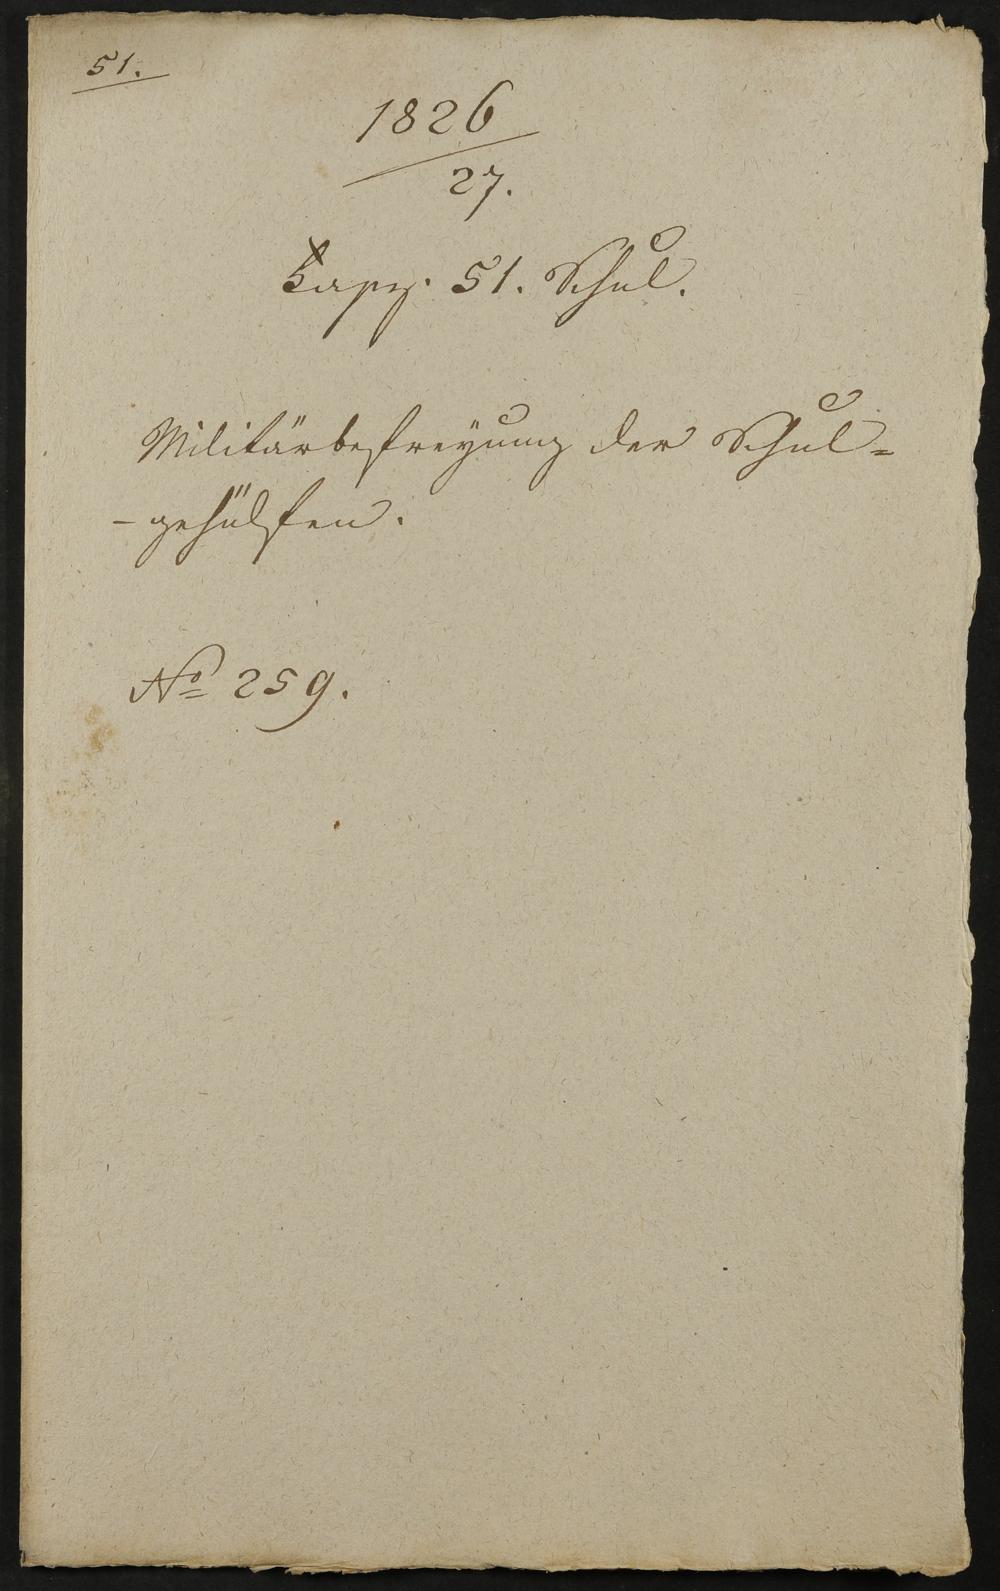 51.
1826
27.
Fasz. 51. Schul.
Militärbefreyung der Schul=
-gehülfen.
No 259.